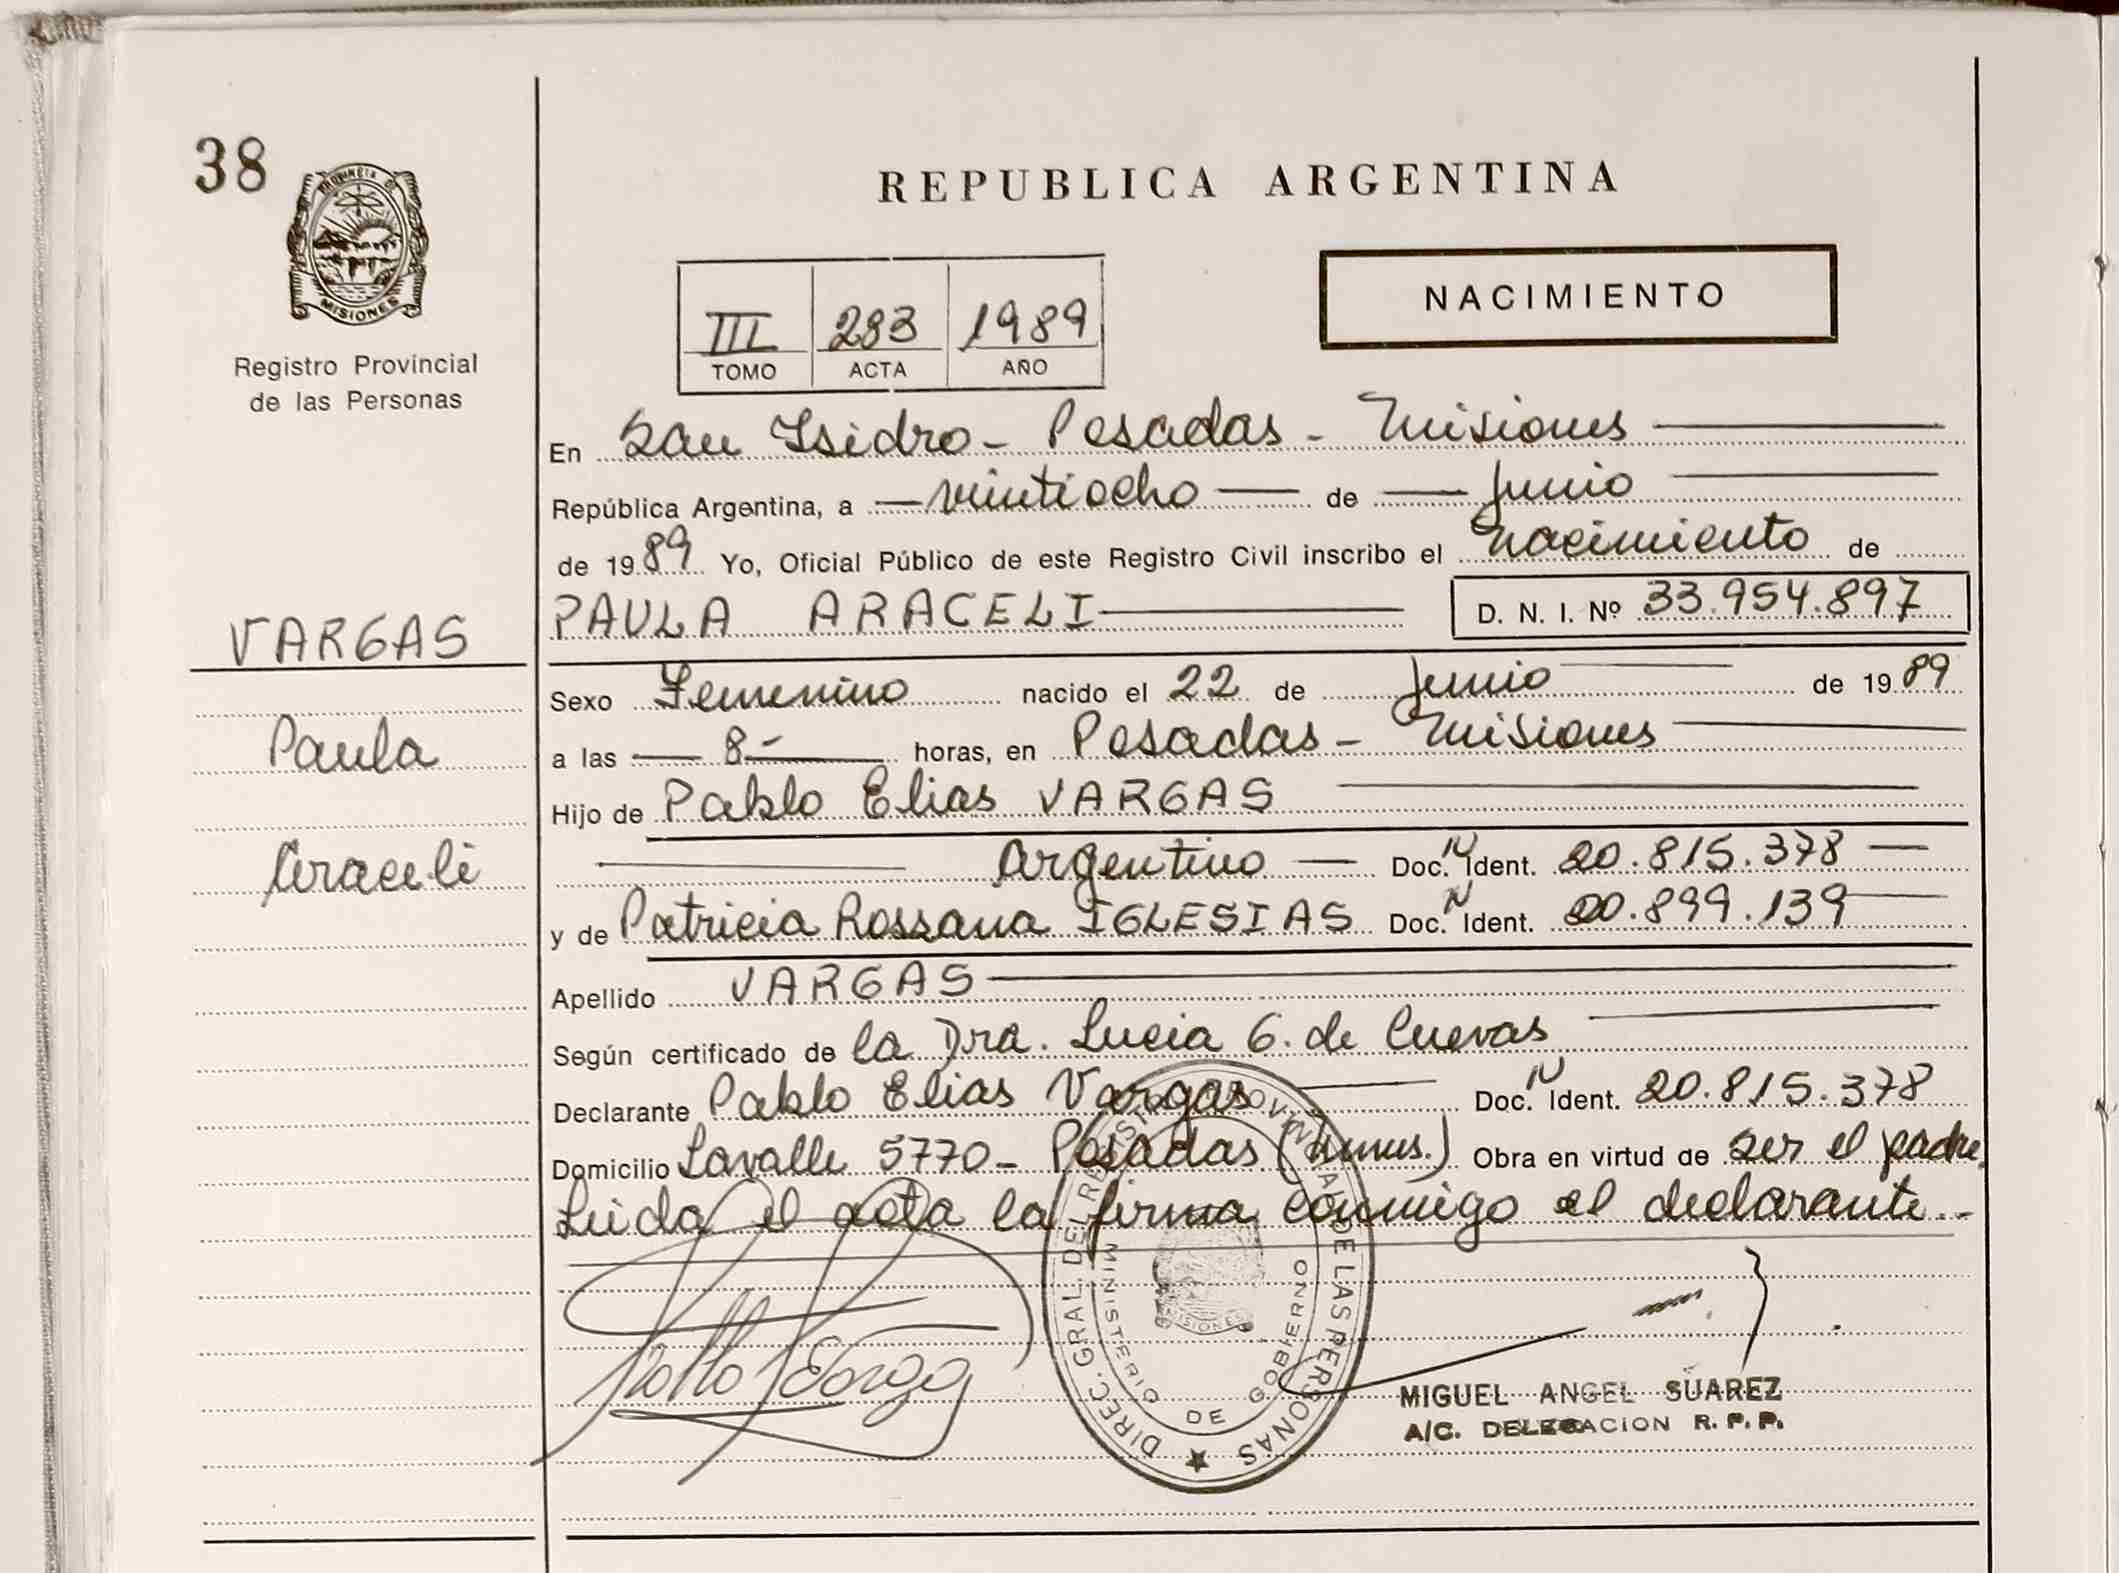 38
PROVINCIA DE
MISIONES
Registro Provincial
de las Personas
VARGAS
Paula
Araceli
REPUBLICA ARGENTINA
NACIMIENTO
III 283 1989
TOMO ACTA AÑO
En San Isidro - Posadas - Misiones
República Argentina, a veintiocho de Junio
de 1989 Yo, Oficial Público de este Registro Civil inscribo el nacimiento de
PAULA ARACELI D. N. I. Nº 33.954.897
Sexo Femenino nacido el 22 de Junio de 1989
a las 8 - horas, en Posadas - Misiones
Hijo de Pablo Elias VARGAS
Argentino Doc. N Ident. 20.815.378
y de Patricia Rossana IGLESIAS Doc. N Ident. 20.899.139
Apellido VARGAS
Según certificado de la Dra. Lucia G. de Cuevas
Declarante Pablo Elias Vargas Doc. N Ident. 20.815.378
Domicilio Lavalle 5770 - Posadas (Mnes.) Obra en virtud de ser el padre.
Leida el acta la firma conmigo el declarante. -
DIREC. GRAL. DEL REGISTRO PROVINCIAL DE LAS PERSONAS
MINISTERIO DE GOBIERNO
MISIONES
MIGUEL ANGEL SUAREZ
A/C. DELEGACION R. P. P.